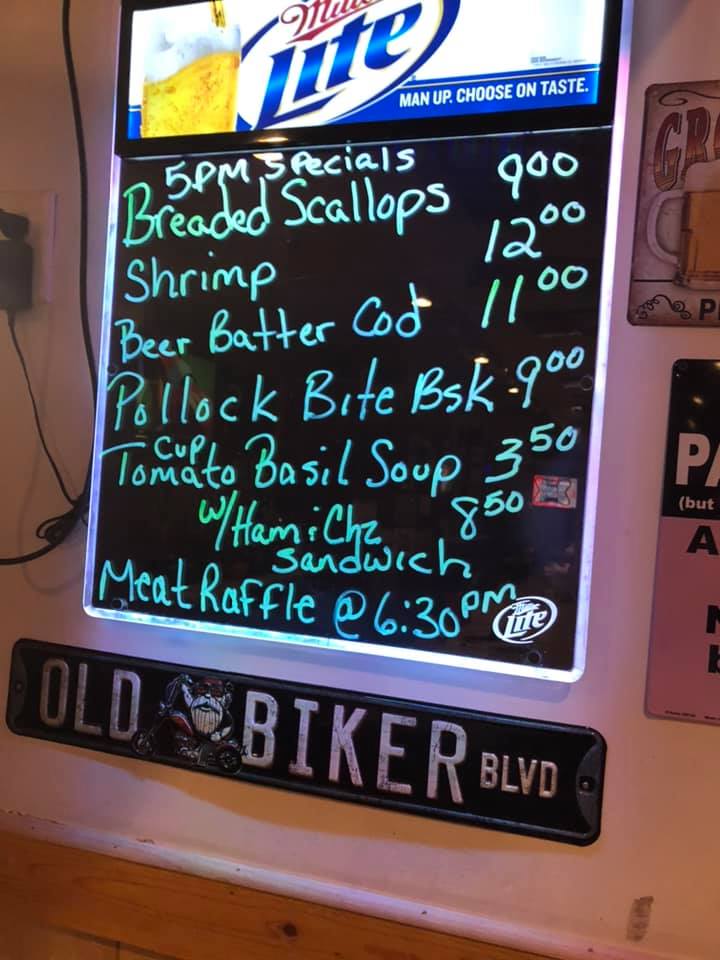 Miller
Lite
MAN UP. CHOOSE ON TASTE.
5PM Specials
Breaded Scallops 9.00
Shrimp 12.00
Beer Batter Cod 11.00
Pollock Bite Bsk 9.00
Cup
Tomato Basil Soup 3.50
w/Ham & Chz 8.50
Sandwich
Meat Raffle @ 6:30PM
Lite
OLD BIKER BLVD
GR
P
PA
(but
A